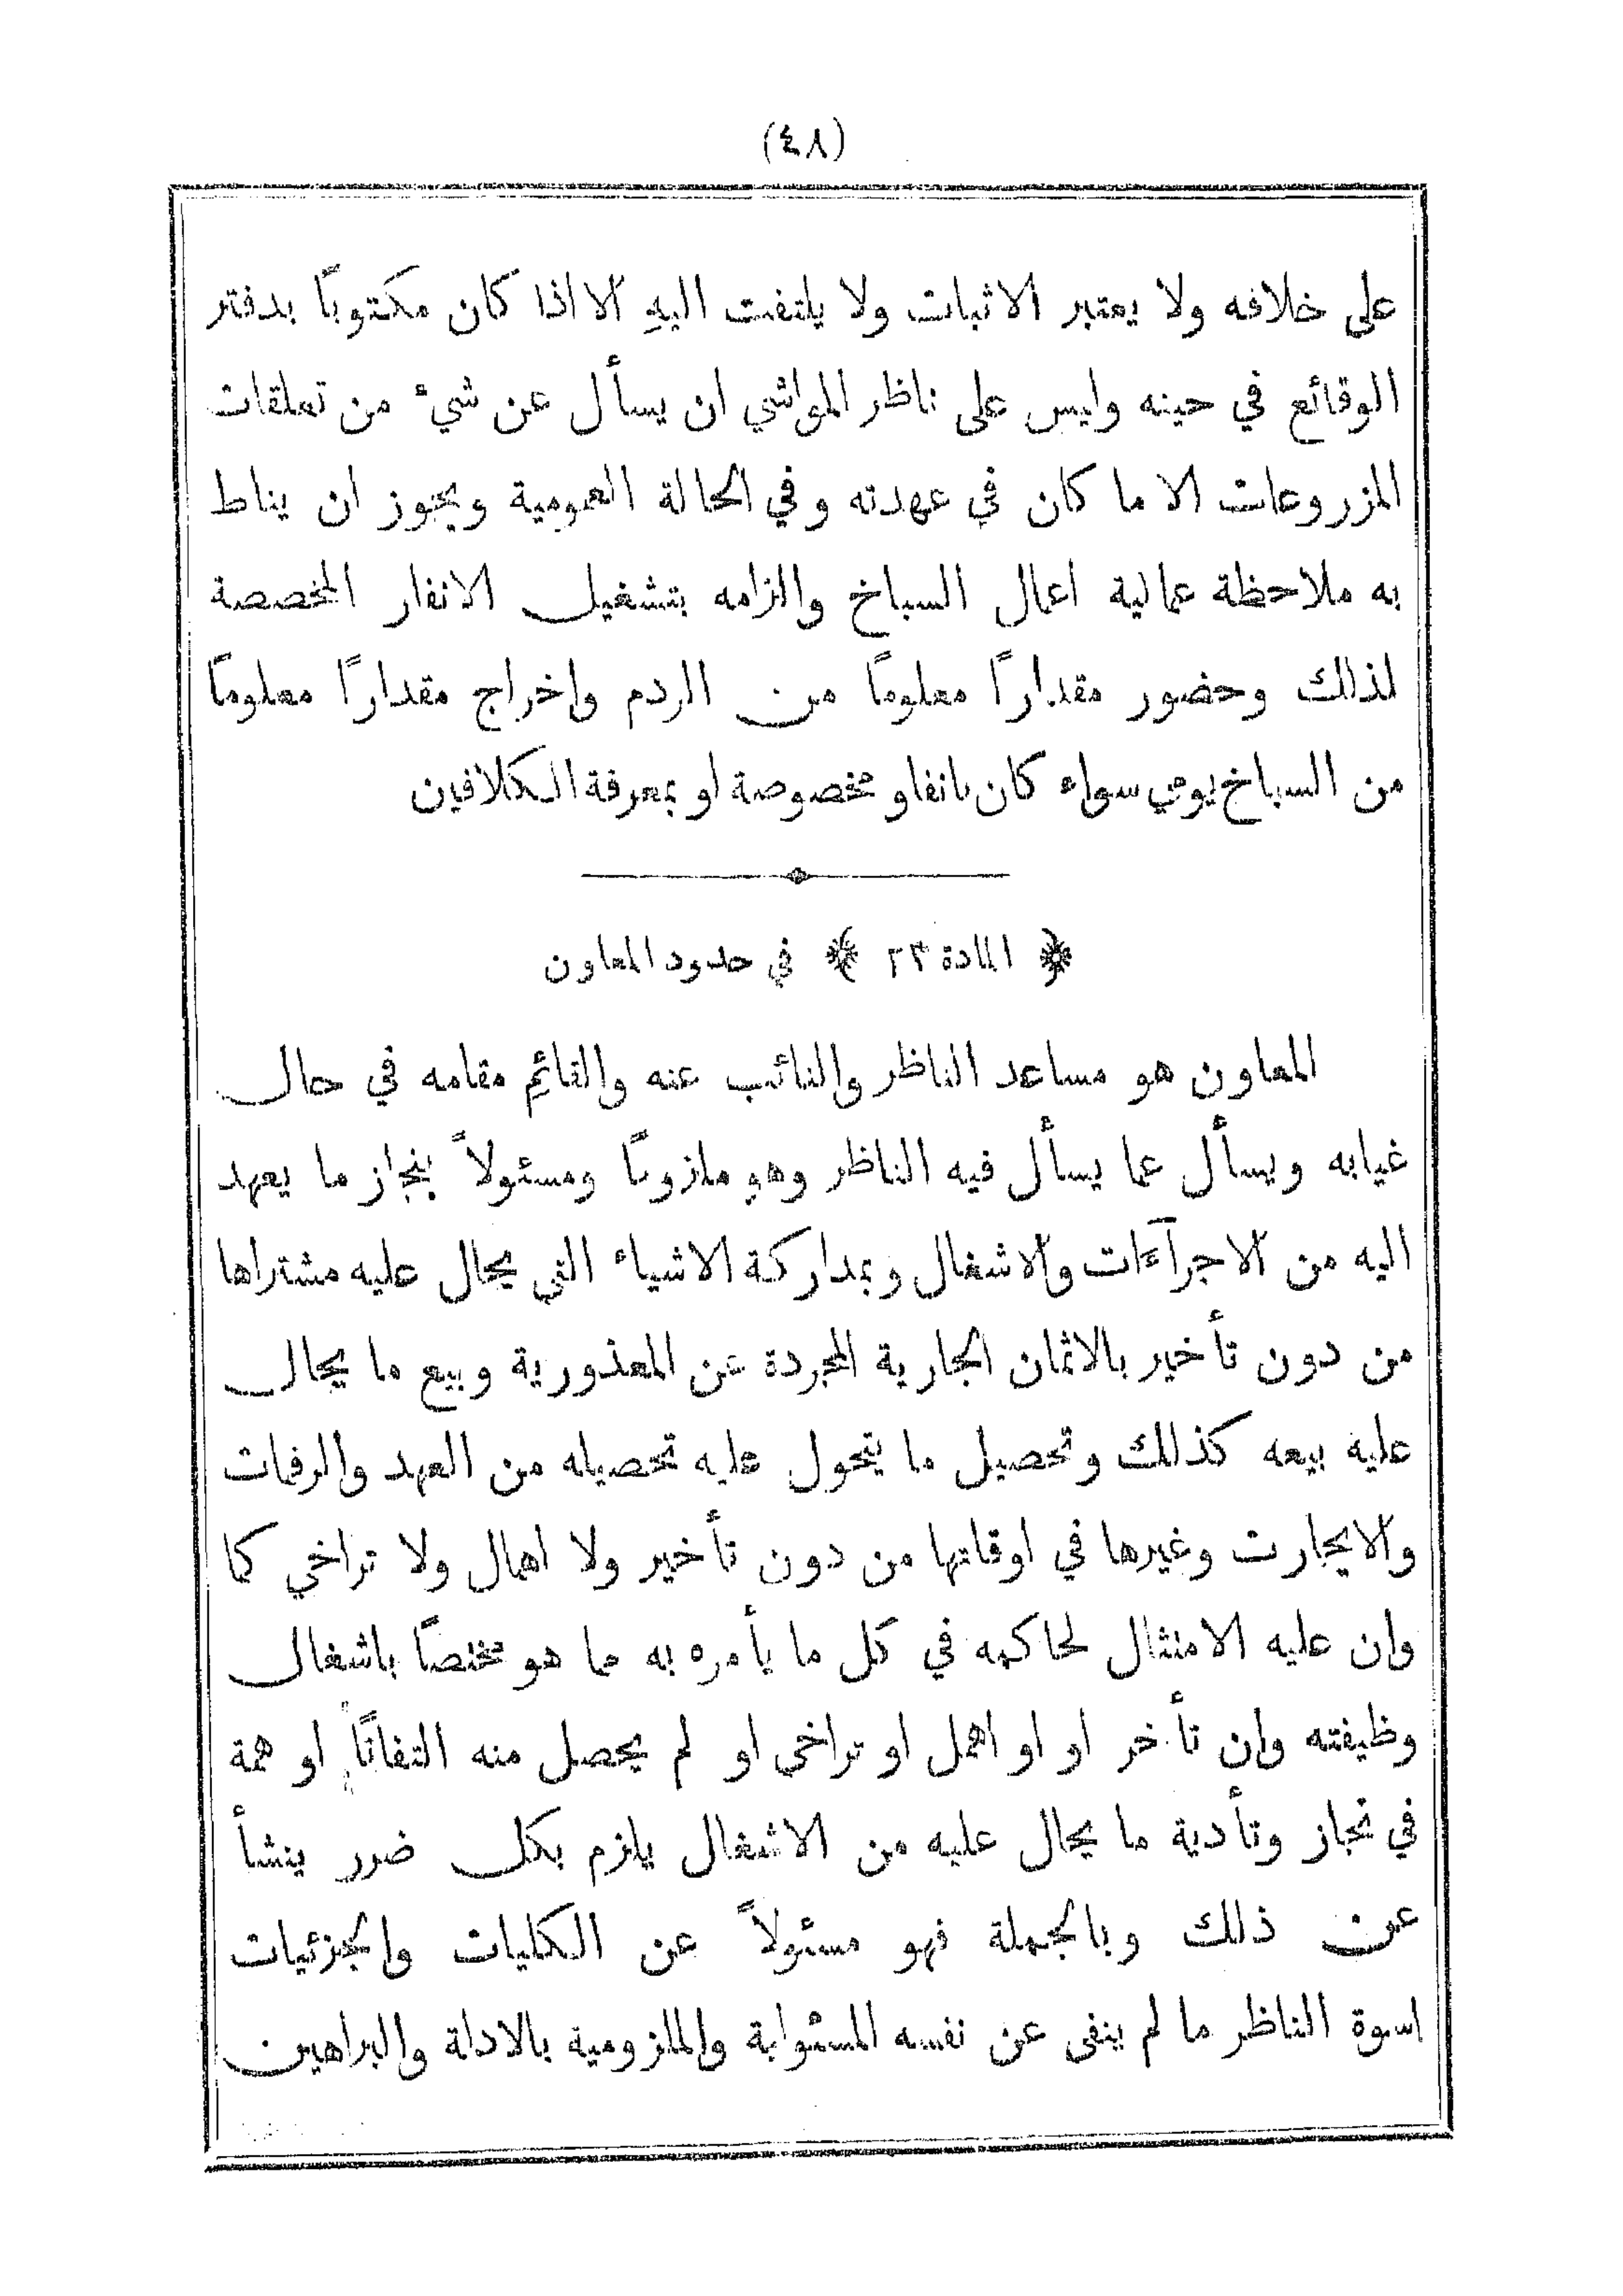 (٤٨)
على خلافه ولا يعتبر الاثبات ولا يلتفت اليهِ الا اذا كان مكتوبًا بدفتر
الوقائع في حينه وليس على ناظر المواشي ان يسأل عن شيء من تعلقات
المزروعات الا ما كان في عهدته وفي الحالة العمومية ويجوز ان يناط
به ملاحظة عمالية اعمال السباخ والزامه بتشغيل الانفار المخصصة
لذلك وحضور مقدارًا معلومًا من الردم واخراج مقدارًا معلومًا
من السباخ يومي سواء كان بانفار مخصوصة او بمعرفة الكلافين
﴿ المادة ٢٣ ﴾ في حدود المعاون
المعاون هو مساعد الناظر والنائب عنه والقائم مقامه في حال
غيابه ويسأل عما يسأل فيه الناظر وهو ملزومًا ومسئولاً بنجاز ما يعهد
اليه من الاجرآءات والاشغال وبمداركة الاشياء التي يحال عليه مشتراها
من دون تأخير بالاثمان الجارية المجردة عن المعذورية وبيع ما يحال
عليه بيعه كذلك وتحصيل ما يتحول عليه تحصيله من العهد والرفات
والايجارت وغيرها في اوقاتها من دون تأخير ولا اهمال ولا تراخي كما
وان عليه الامتثال لحاكمه في كل ما يأمره به مما هو مختصًا باشغال
وظيفته وان تأخر او او اهمل او تراخى او لم يحصل منه التفاتًا او همة
في نجاز وتأدية ما يحال عليه من الاشغال يلزم بكل ضرر ينشأ
عن ذلك وبالجملة فهو مسئولاً عن الكليات والجزئيات
اسوة الناظر ما لم ينفى عن نفسه المسئولية والملزومية بالادلة والبراهين